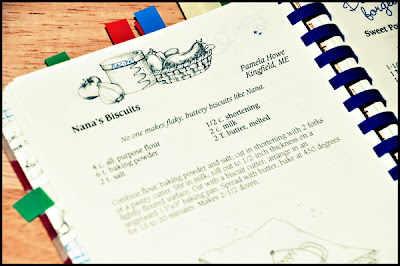 forget
Pamela Howe
Kingfield, ME
Sweet Po
Nana's Biscuits
No one makes flaky, buttery biscuits like Nana.
4 c. all-purpose flour
6 t. baking powder
2 t. salt
1/2 c. shortening
2 c. milk
2 T. butter, melted
Combine flour, baking powder and salt, cut in shortening with 2 forks
or a pastry cutter. Stir in milk, roll out to 1/2 inch thickness on a
lightly floured surface. Cut with a biscuit cutter; arrange in an
ungreased 13"x9" baking pan. Spread with butter, bake at 450 degrees
for 15 to 20 minutes. Makes 2 1/2 dozen.